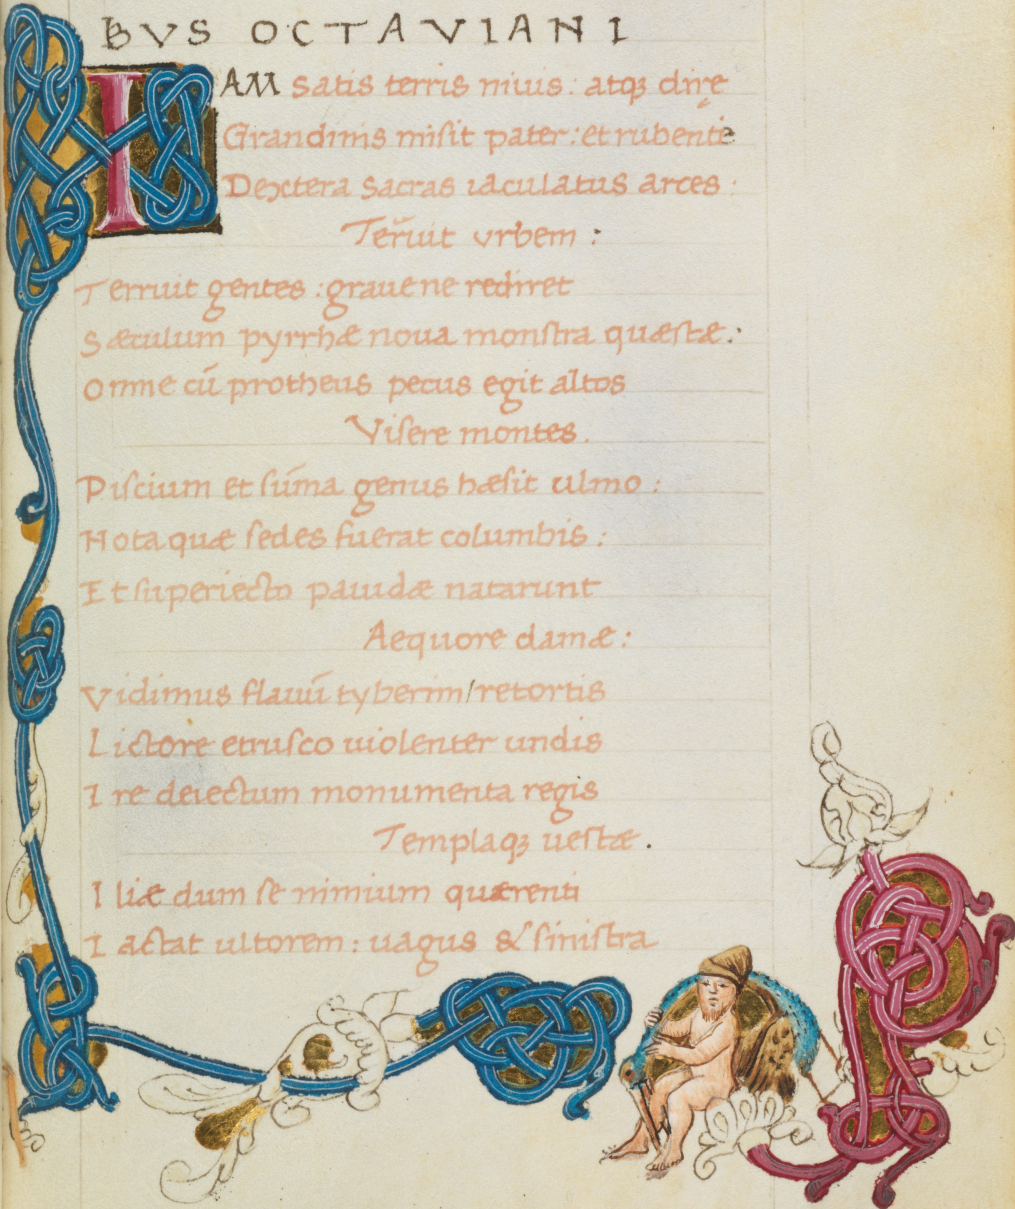 BVS OCTAVIANI
IAM satis terris niuis : atqꝫ dirę
Grandinis misit pater : et rubente
Dextera sacras iaculatus arces :
Terr̃uit vrbem :
Terruit gentes : graue ne rediret
Sæculum pyrrhæ noua monſtra quæſtæ :
Omne cū protheus pecus egit altos
Viſere montes .
Piſcium et ſūma genus hæſit ulmo :
Nota quæ ſedes fuerat columbis :
Et ſuperiecto pauidæ natarunt
Aequore damæ :
Vidimus flauū tyberim / retortis
Lictore etruſco uiolenter undis
Ire deiectum monumenta regis
Templaqꝫ ueſtæ .
Iliæ dum ſe nimium quærenti
Iactat ultorem : uagus & ſiniſtra